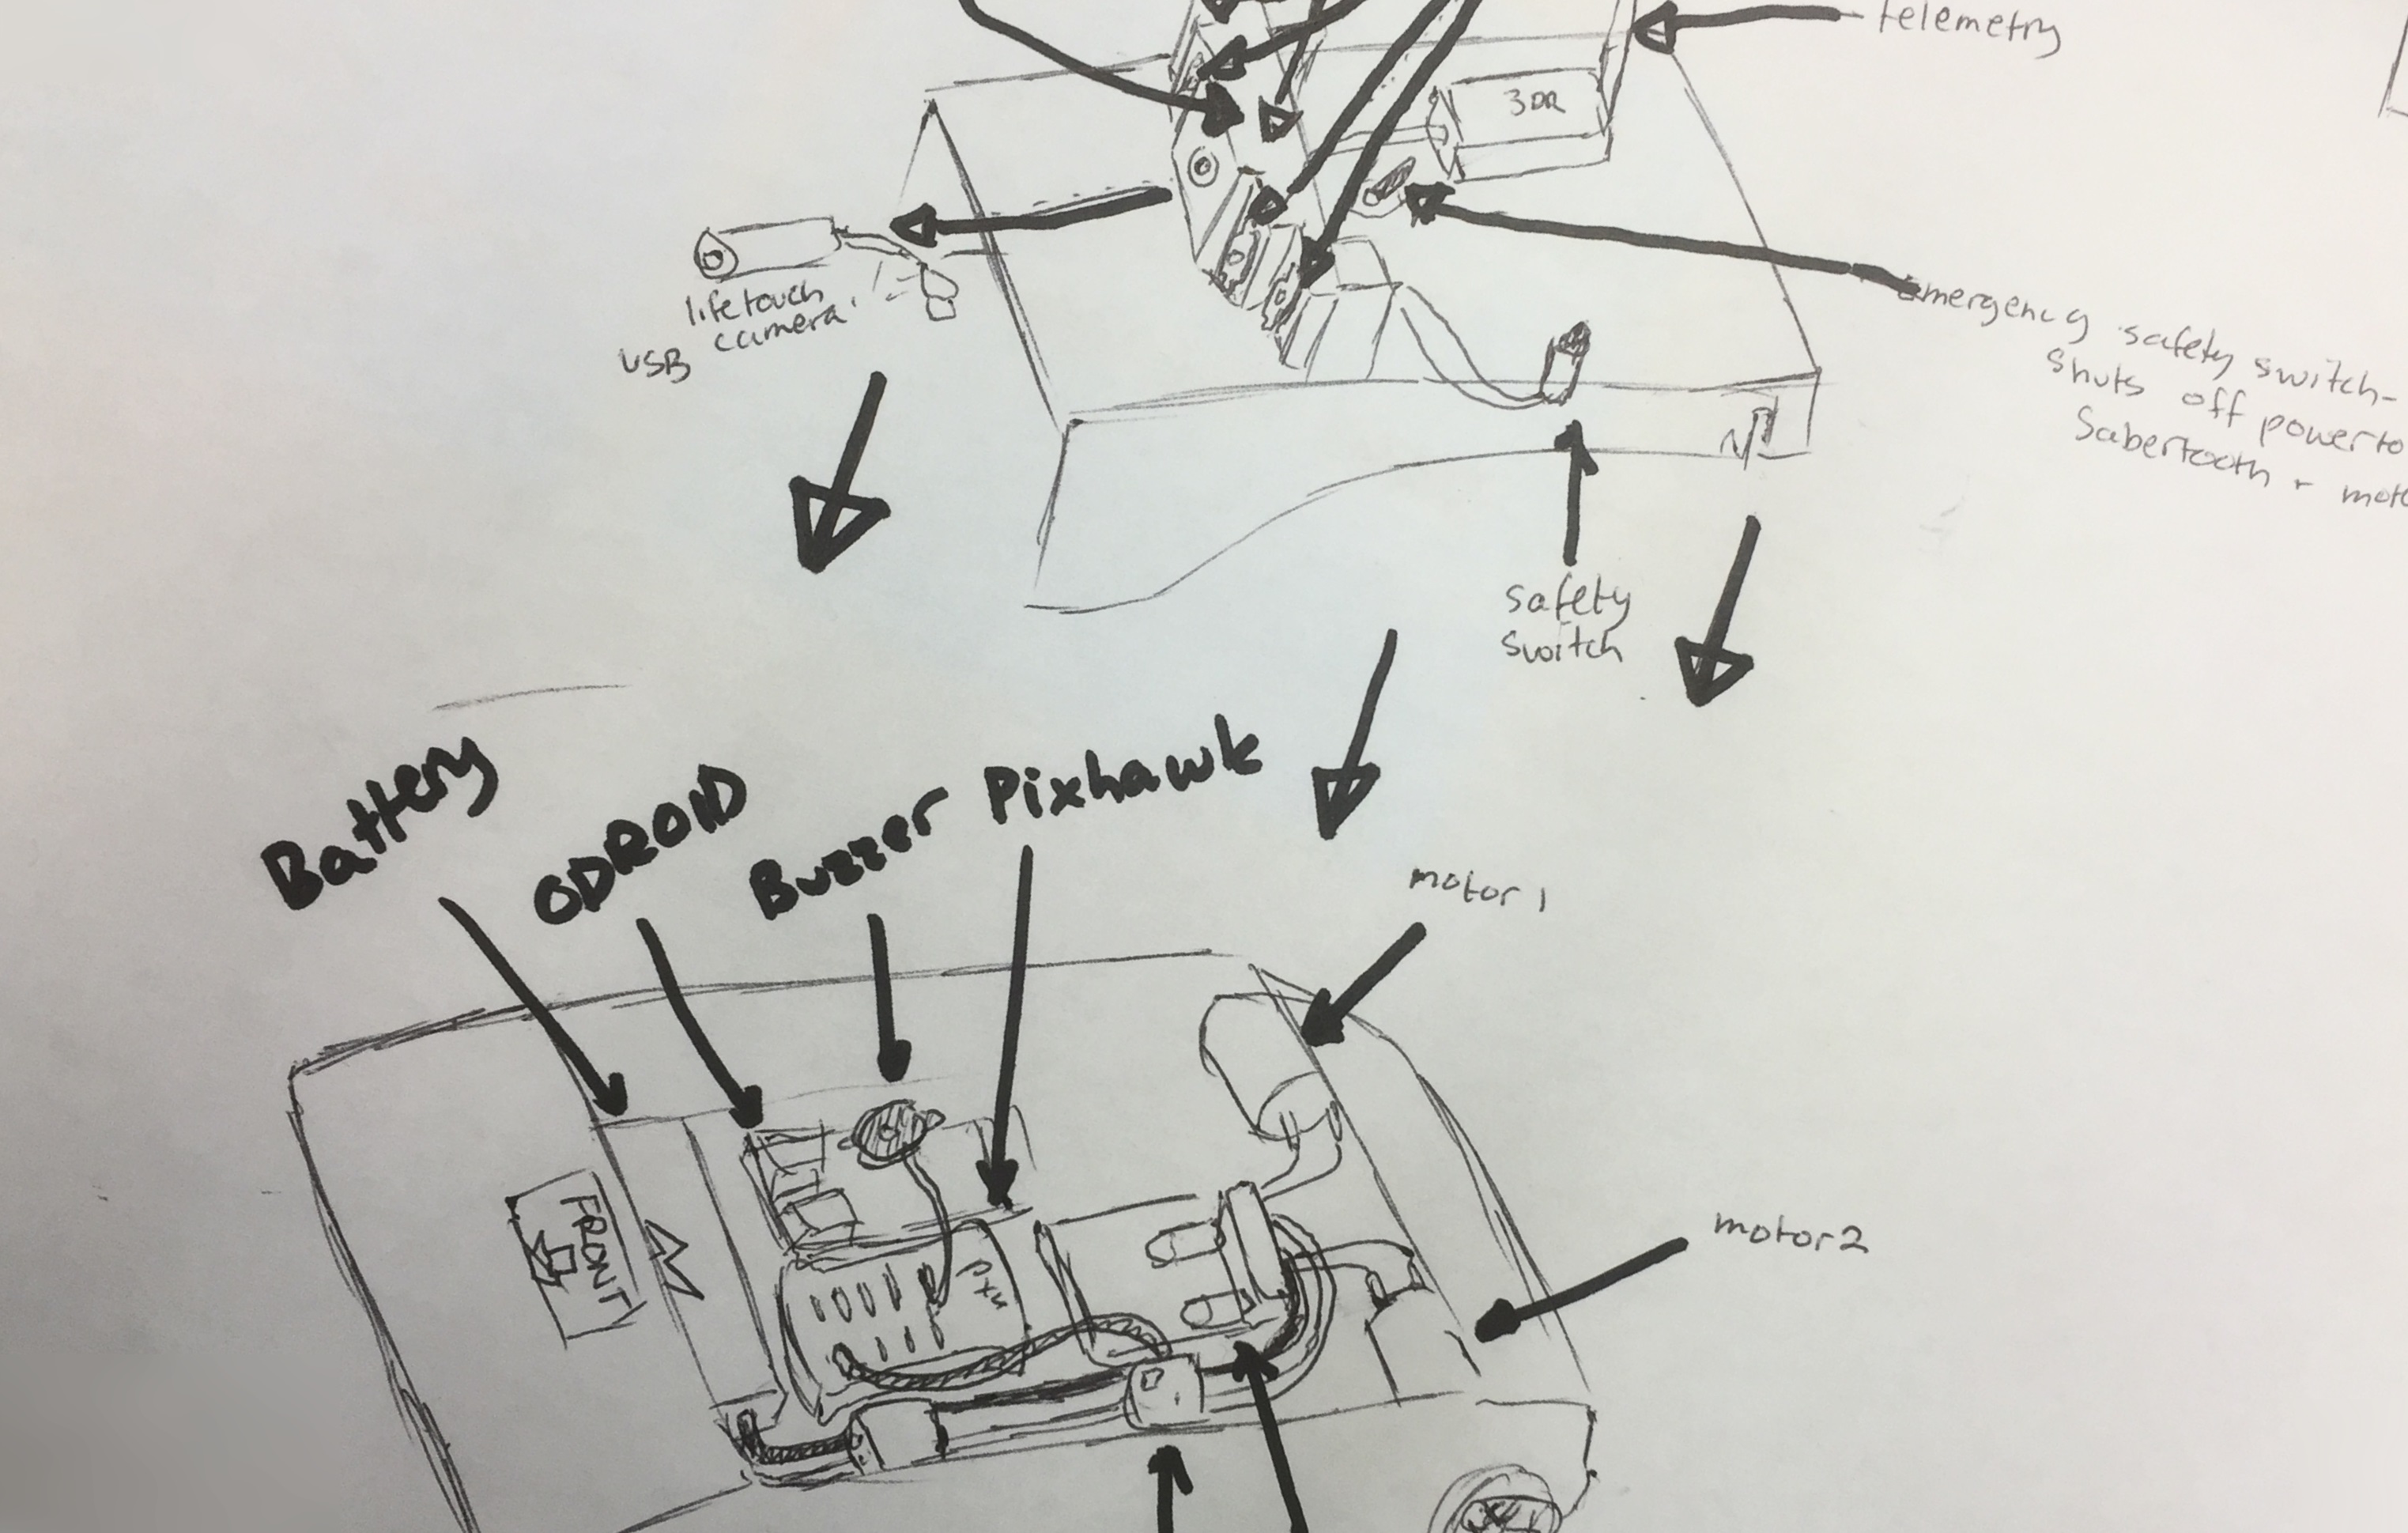 telemetry
3DR
lifetouch
USB camera
emergency safety switch-
shuts off power to
Sabertooth + moto
safety
switch
Battery
ODROID
Buzzer
Pixhawk
motor 1
FRONT
motor 2